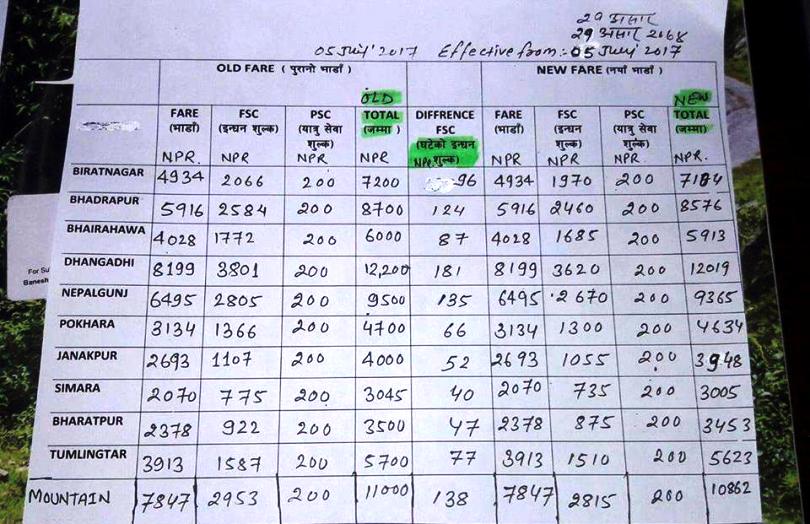 29 असार
29 असार 2068
05 July' 2017 Effective from:- 05 July 2017
OLD FARE ( पुरानो भाडाँ ) NEW FARE (नयाँ भाडाँ )
OLD NEW
FARE FSC PSC TOTAL DIFFRENCE FARE FSC PSC TOTAL
(भाडाँ) (इन्धन शुल्क) (यात्रु सेवा शुल्क) (जम्मा ) FSC (घटेको इन्धन शुल्क) (भाडाँ) (इन्धन शुल्क) (यात्रु सेवा शुल्क) (जम्मा)
NPR. NPR NPR NPR NPR NPR NPR NPR NPR.
BIRATNAGAR 4934 2066 200 7200 96 4934 1970 200 7104
BHADRAPUR 5916 2584 200 8700 124 5916 2460 200 8576
BHAIRAHAWA 4028 1772 200 6000 87 4028 1685 200 5913
DHANGADHI 8199 3801 200 12,200 181 8199 3620 200 12019
NEPALGUNJ 6495 2805 200 9500 135 6495 2670 200 9365
POKHARA 3134 1366 200 4700 66 3134 1300 200 4634
JANAKPUR 2693 1107 200 4000 52 2693 1055 200 3948
SIMARA 2070 775 200 3045 40 2070 735 200 3005
BHARATPUR 2378 922 200 3500 47 2378 875 200 3453
TUMLINGTAR 3913 1587 200 5700 77 3913 1510 200 5623
MOUNTAIN 7847 2953 200 11000 138 7847 2815 200 10862
For Su
Banesh